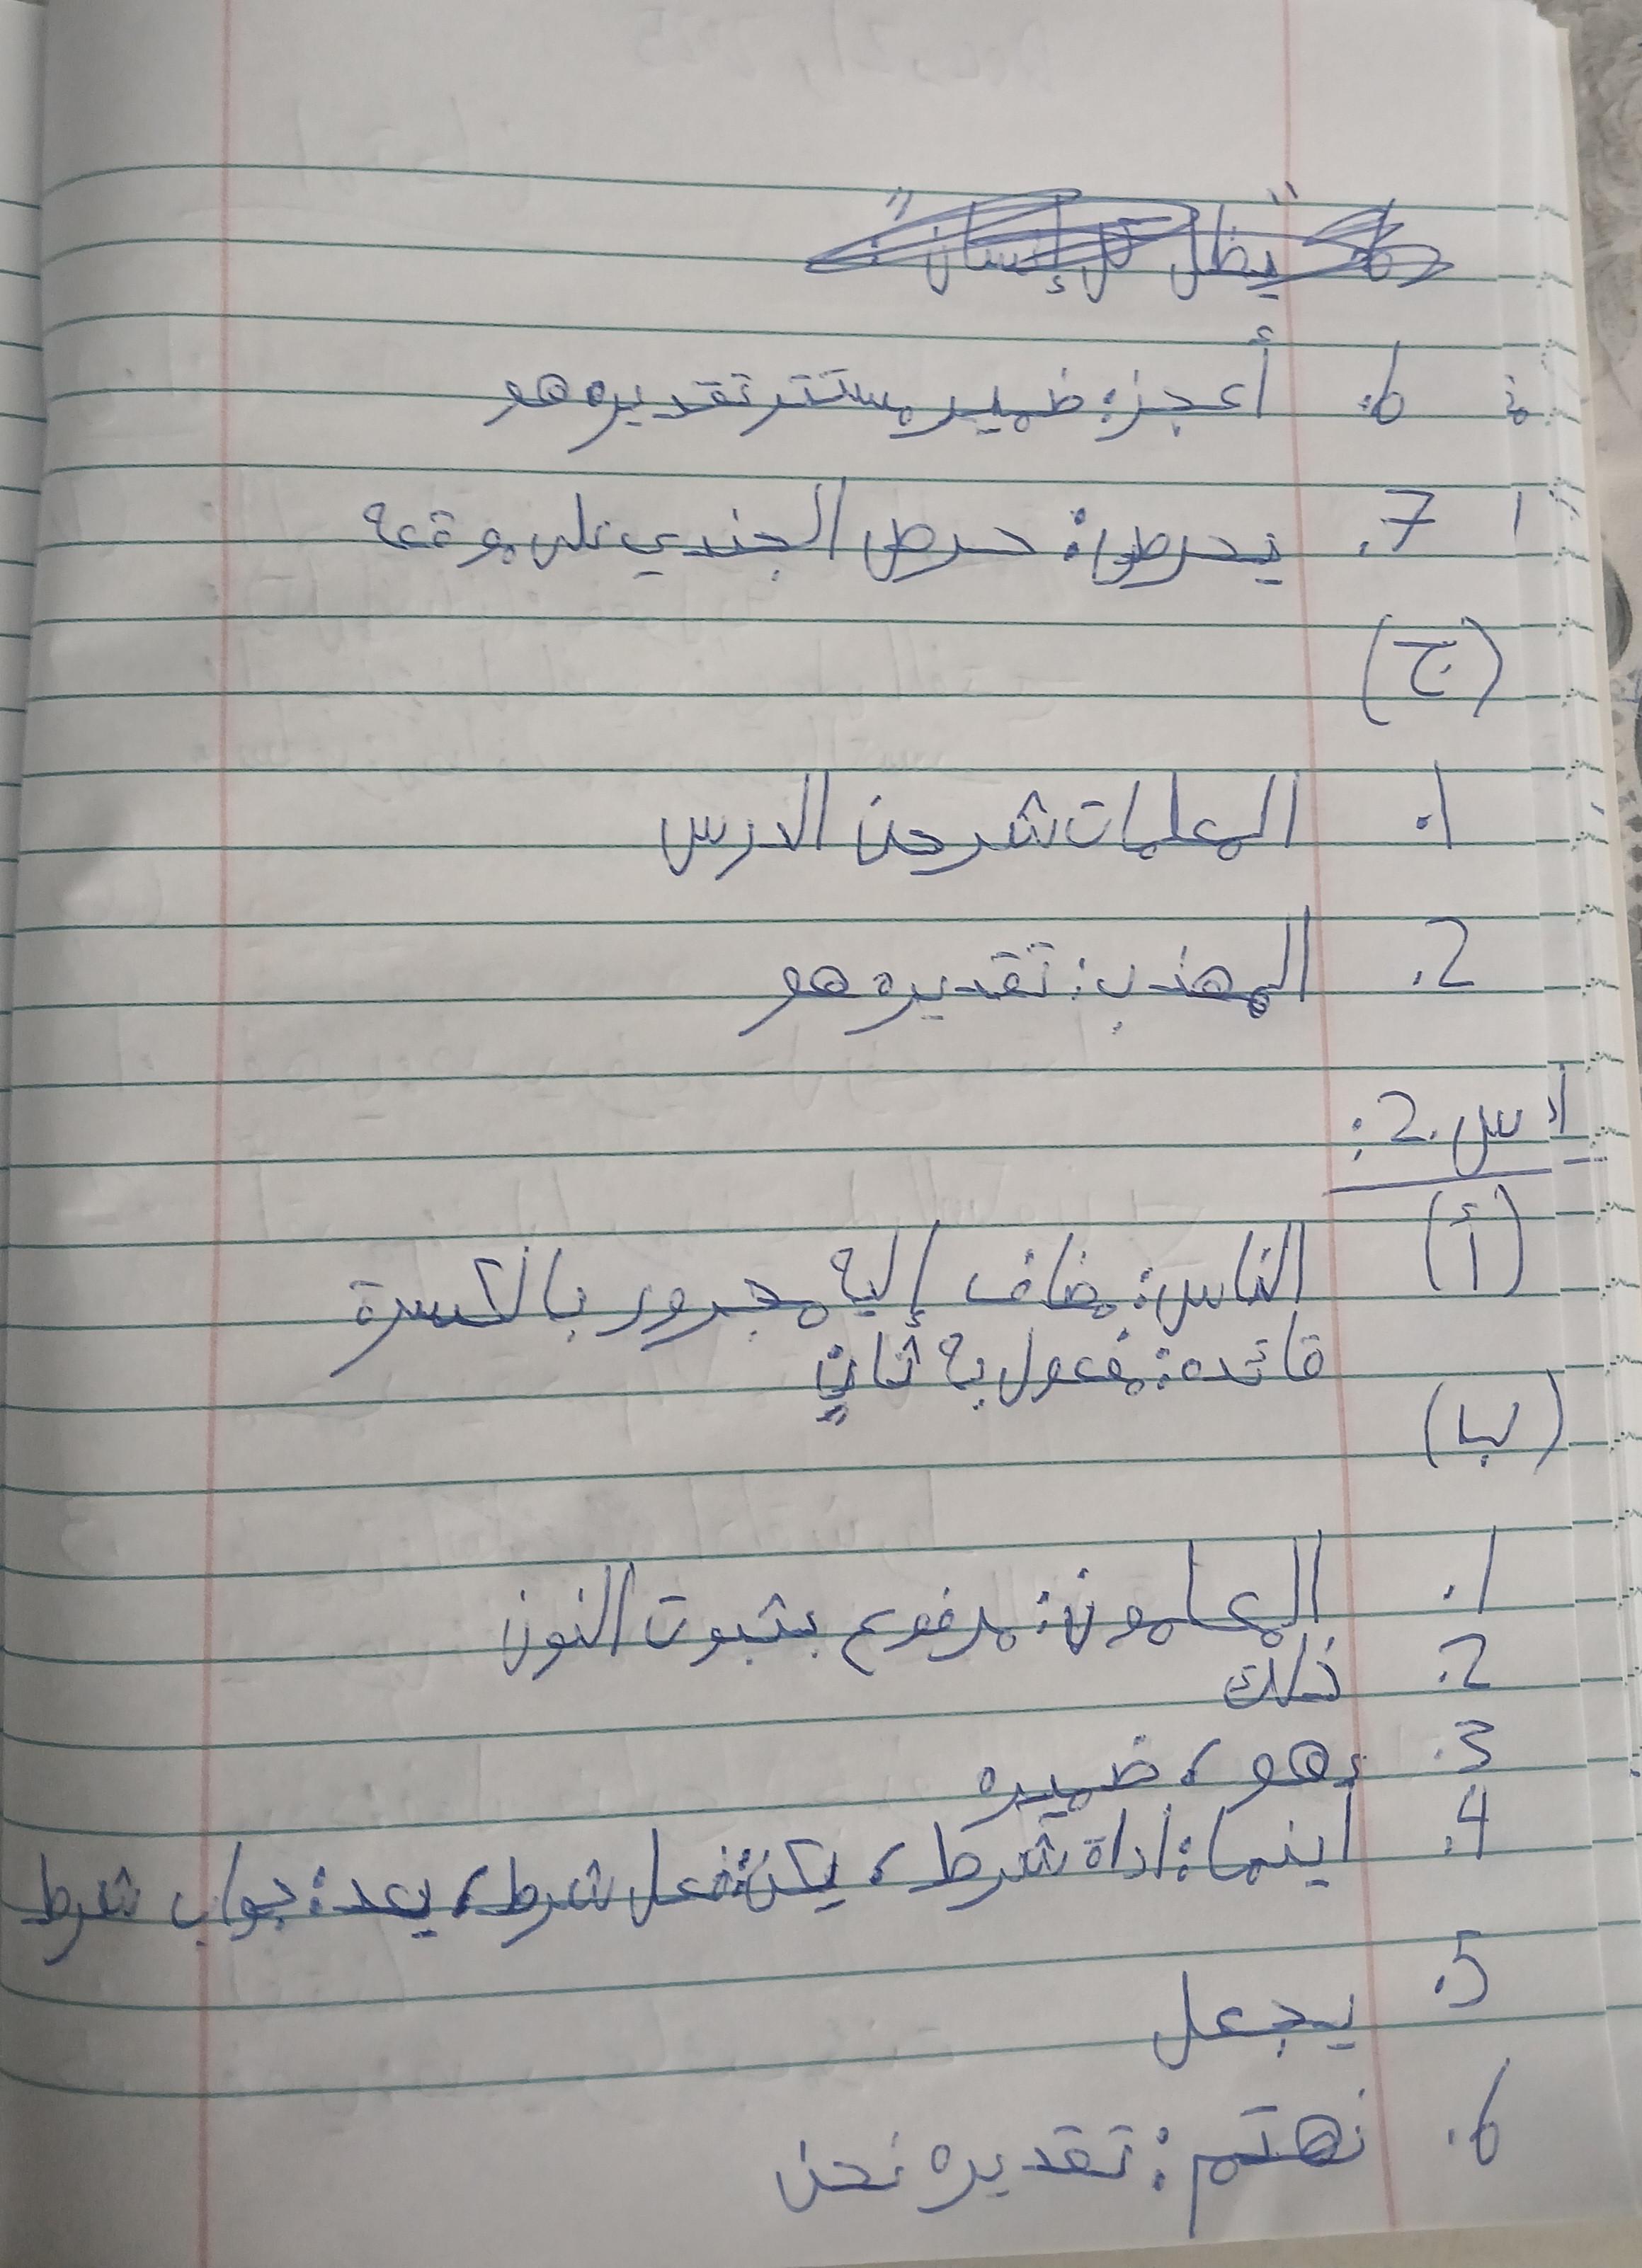 6. أعجز: ضمير مستتر تقديره هو
7. يحرص: حرص الجندي على موقعه
(ج)
1. المعلمات شرحن الدرس
2. المهذب: تقديره هو
س.2:
(أ) الناس: مضاف إلية مجرور بالكسرة
قائده: مفعول به ثاني
(ب)
1. المعلمون: مرفوع بثبوت النون
2. ذلك
3. هو، ضميره
4. أينما: اداة شرط، يكن: فعل شرط، يعد: جواب شرط
5. يجعل
6. نهتم: تقديره نحن